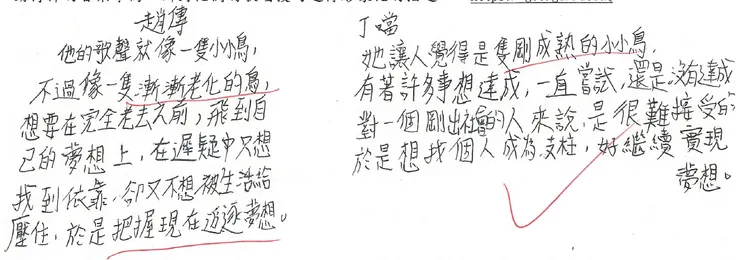 趙傳
他的歌聲就像一隻小小鳥，
不過像一隻漸漸老化的鳥，
想要在完全老去之前，飛到自
己的夢想上，在遲疑中只想
找到依靠，卻又不想被生活給
壓住，於是把握現在追逐夢想。
丁噹
她讓人覺得是隻剛成熟的小小鳥，
有著許多事想達成，一直嘗試，還是沒有達成
對一個剛出社會的人來說，是很難接受的
於是想找個人成為支柱，好繼續實現
夢想。